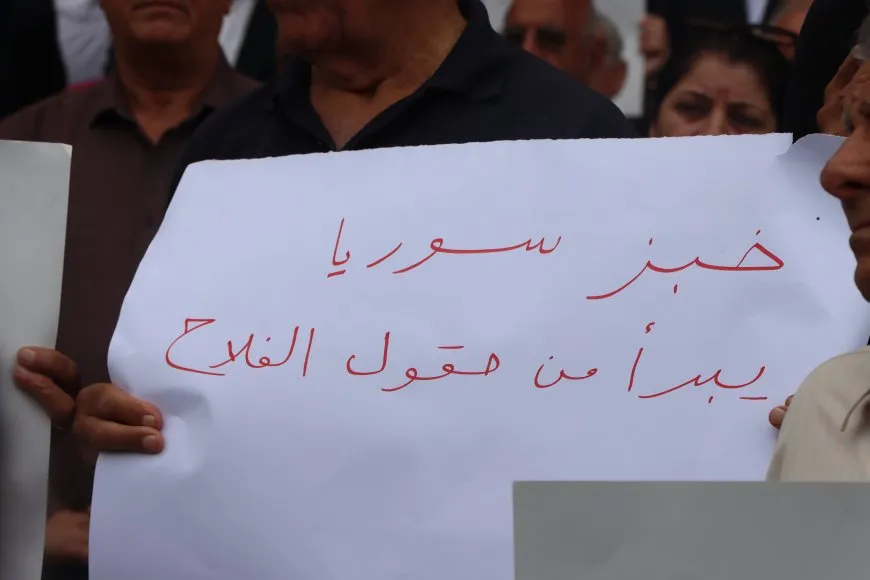 خبز سوريا
يبدأ من حقول الفلاح